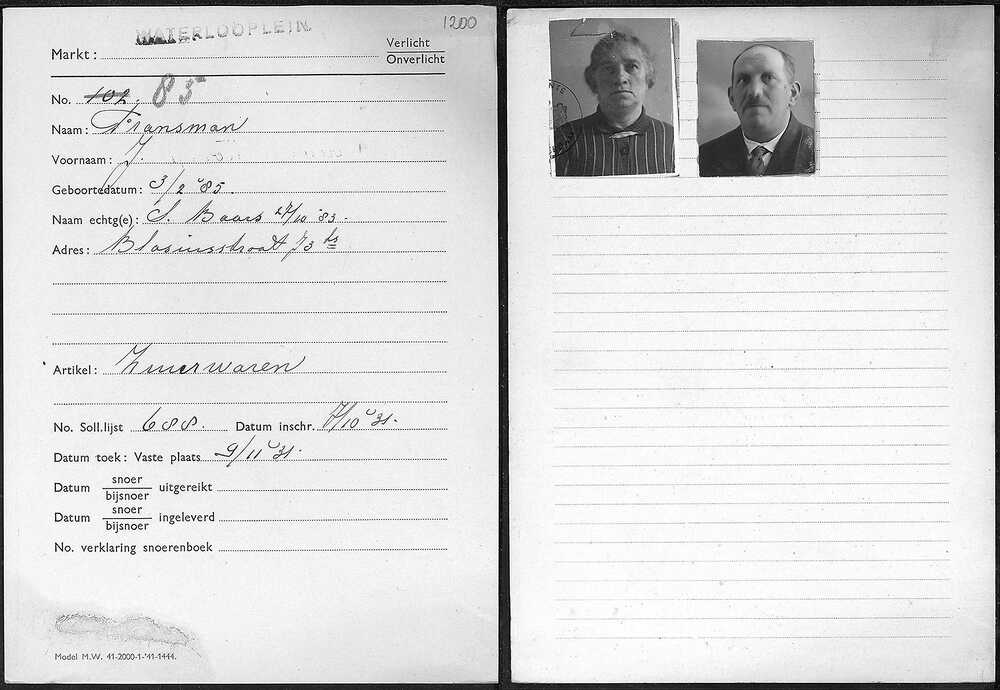 1200
WATERLOOPLEIN.
Markt: Verlicht
Onverlicht
No. 102. 85
Naam: Fransman
Voornaam: J.
Geboortedatum: 3/2 '85.
Naam echtg(e): S. Baars 27/10 '83.
Adres: Blasiusstraat 73 hs
Artikel: Zuurwaren
No. Soll.lijst 688. Datum inschr. 7/10 '31.
Datum toek: Vaste plaats 9/11 '31.
Datum snoer
bijsnoer uitgereikt
Datum snoer
bijsnoer ingeleverd
No. verklaring snoerenboek
Model M.W. 41-2000-1-'41-1444.